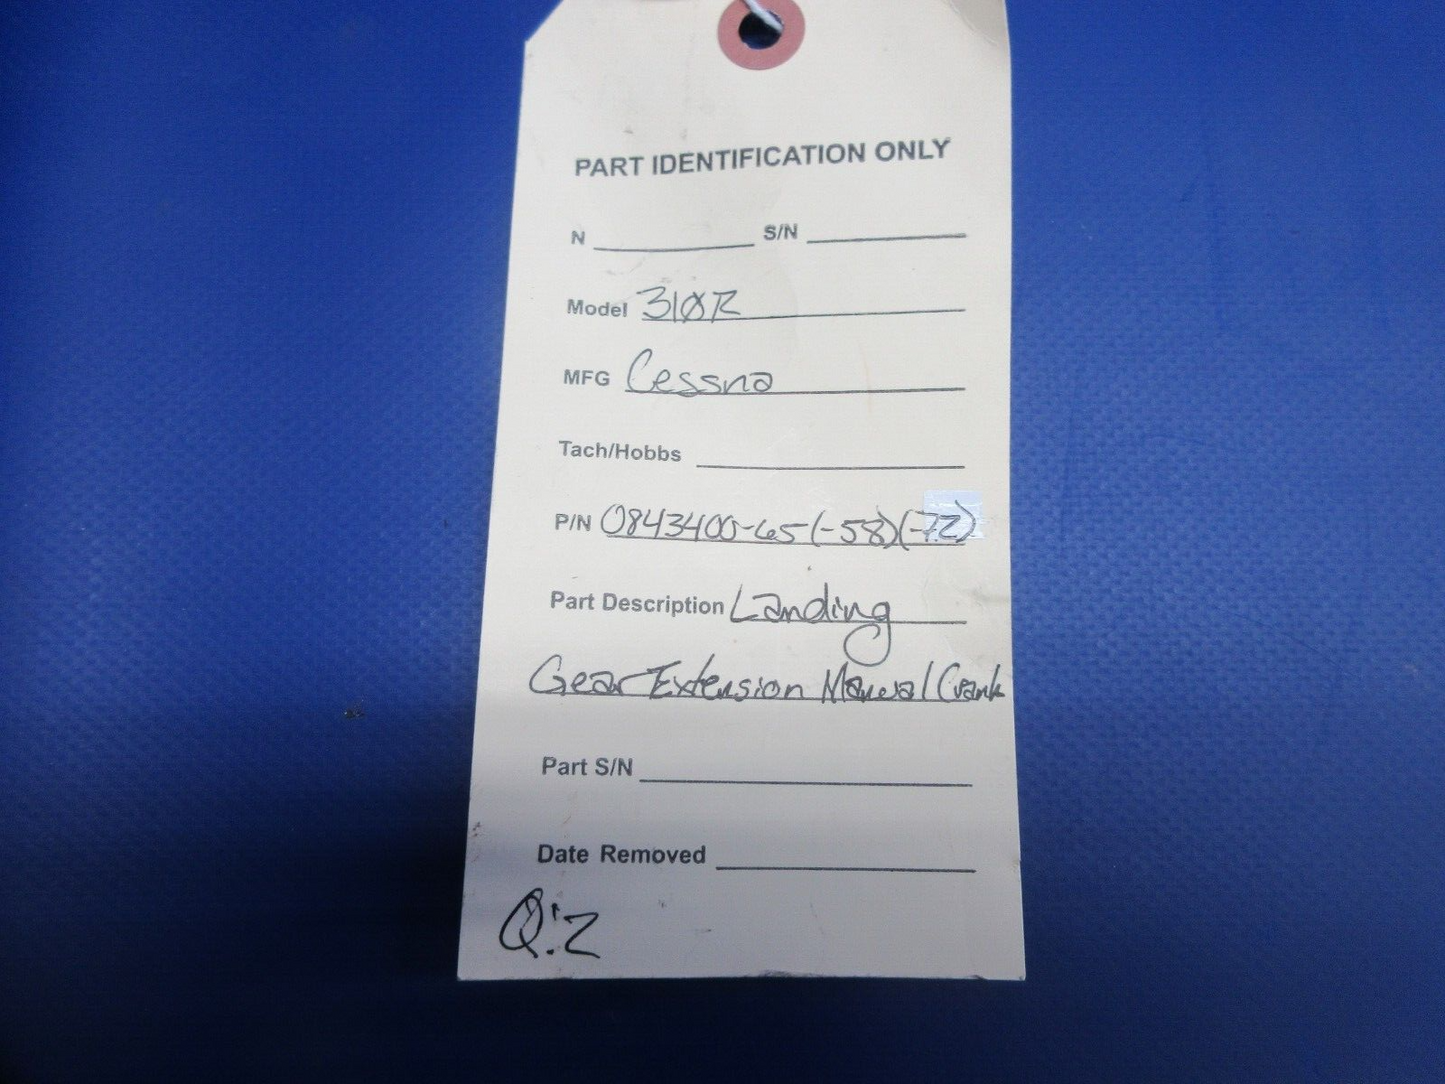 PART IDENTIFICATION ONLY
N S/N
Model 310R
MFG Cessna
Tach/Hobbs
P/N 0843400-65 (-58)(-72)
Part Description Landing
Gear Extension Manual Crank
Part S/N
Date Removed
Q:2